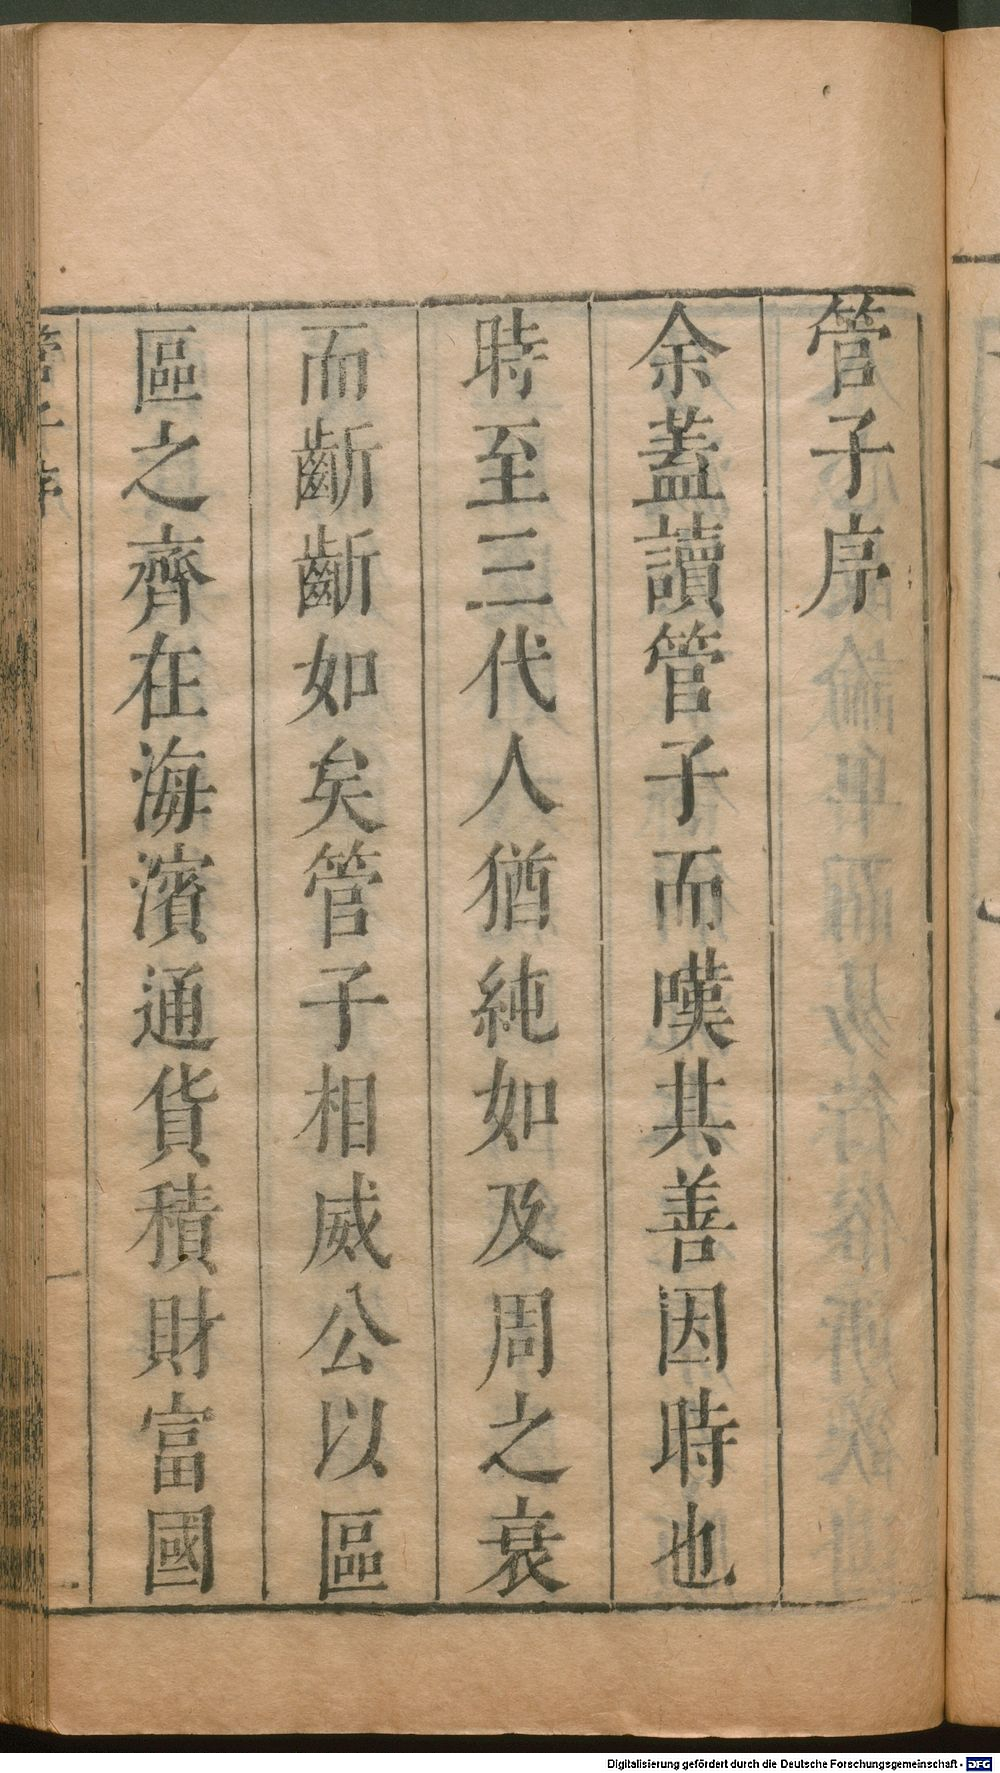 管子序
余蓋讀管子而嘆其善因時也
時至三代人猶純如及周之衰
而齗齗如矣管子相威公以區
區之齊在海濱通貨積財富國
管子序
一
Digitalisierung gefördert durch die Deutsche Forschungsgemeinschaft - DFG